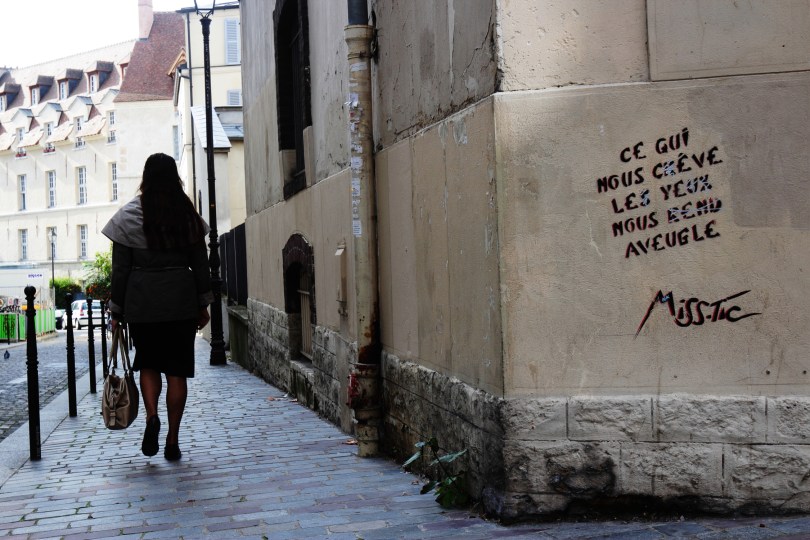 CE QUI
NOUS CRÊVE
LES YEUX
NOUS REND
AVEUGLE
MISS-TIC